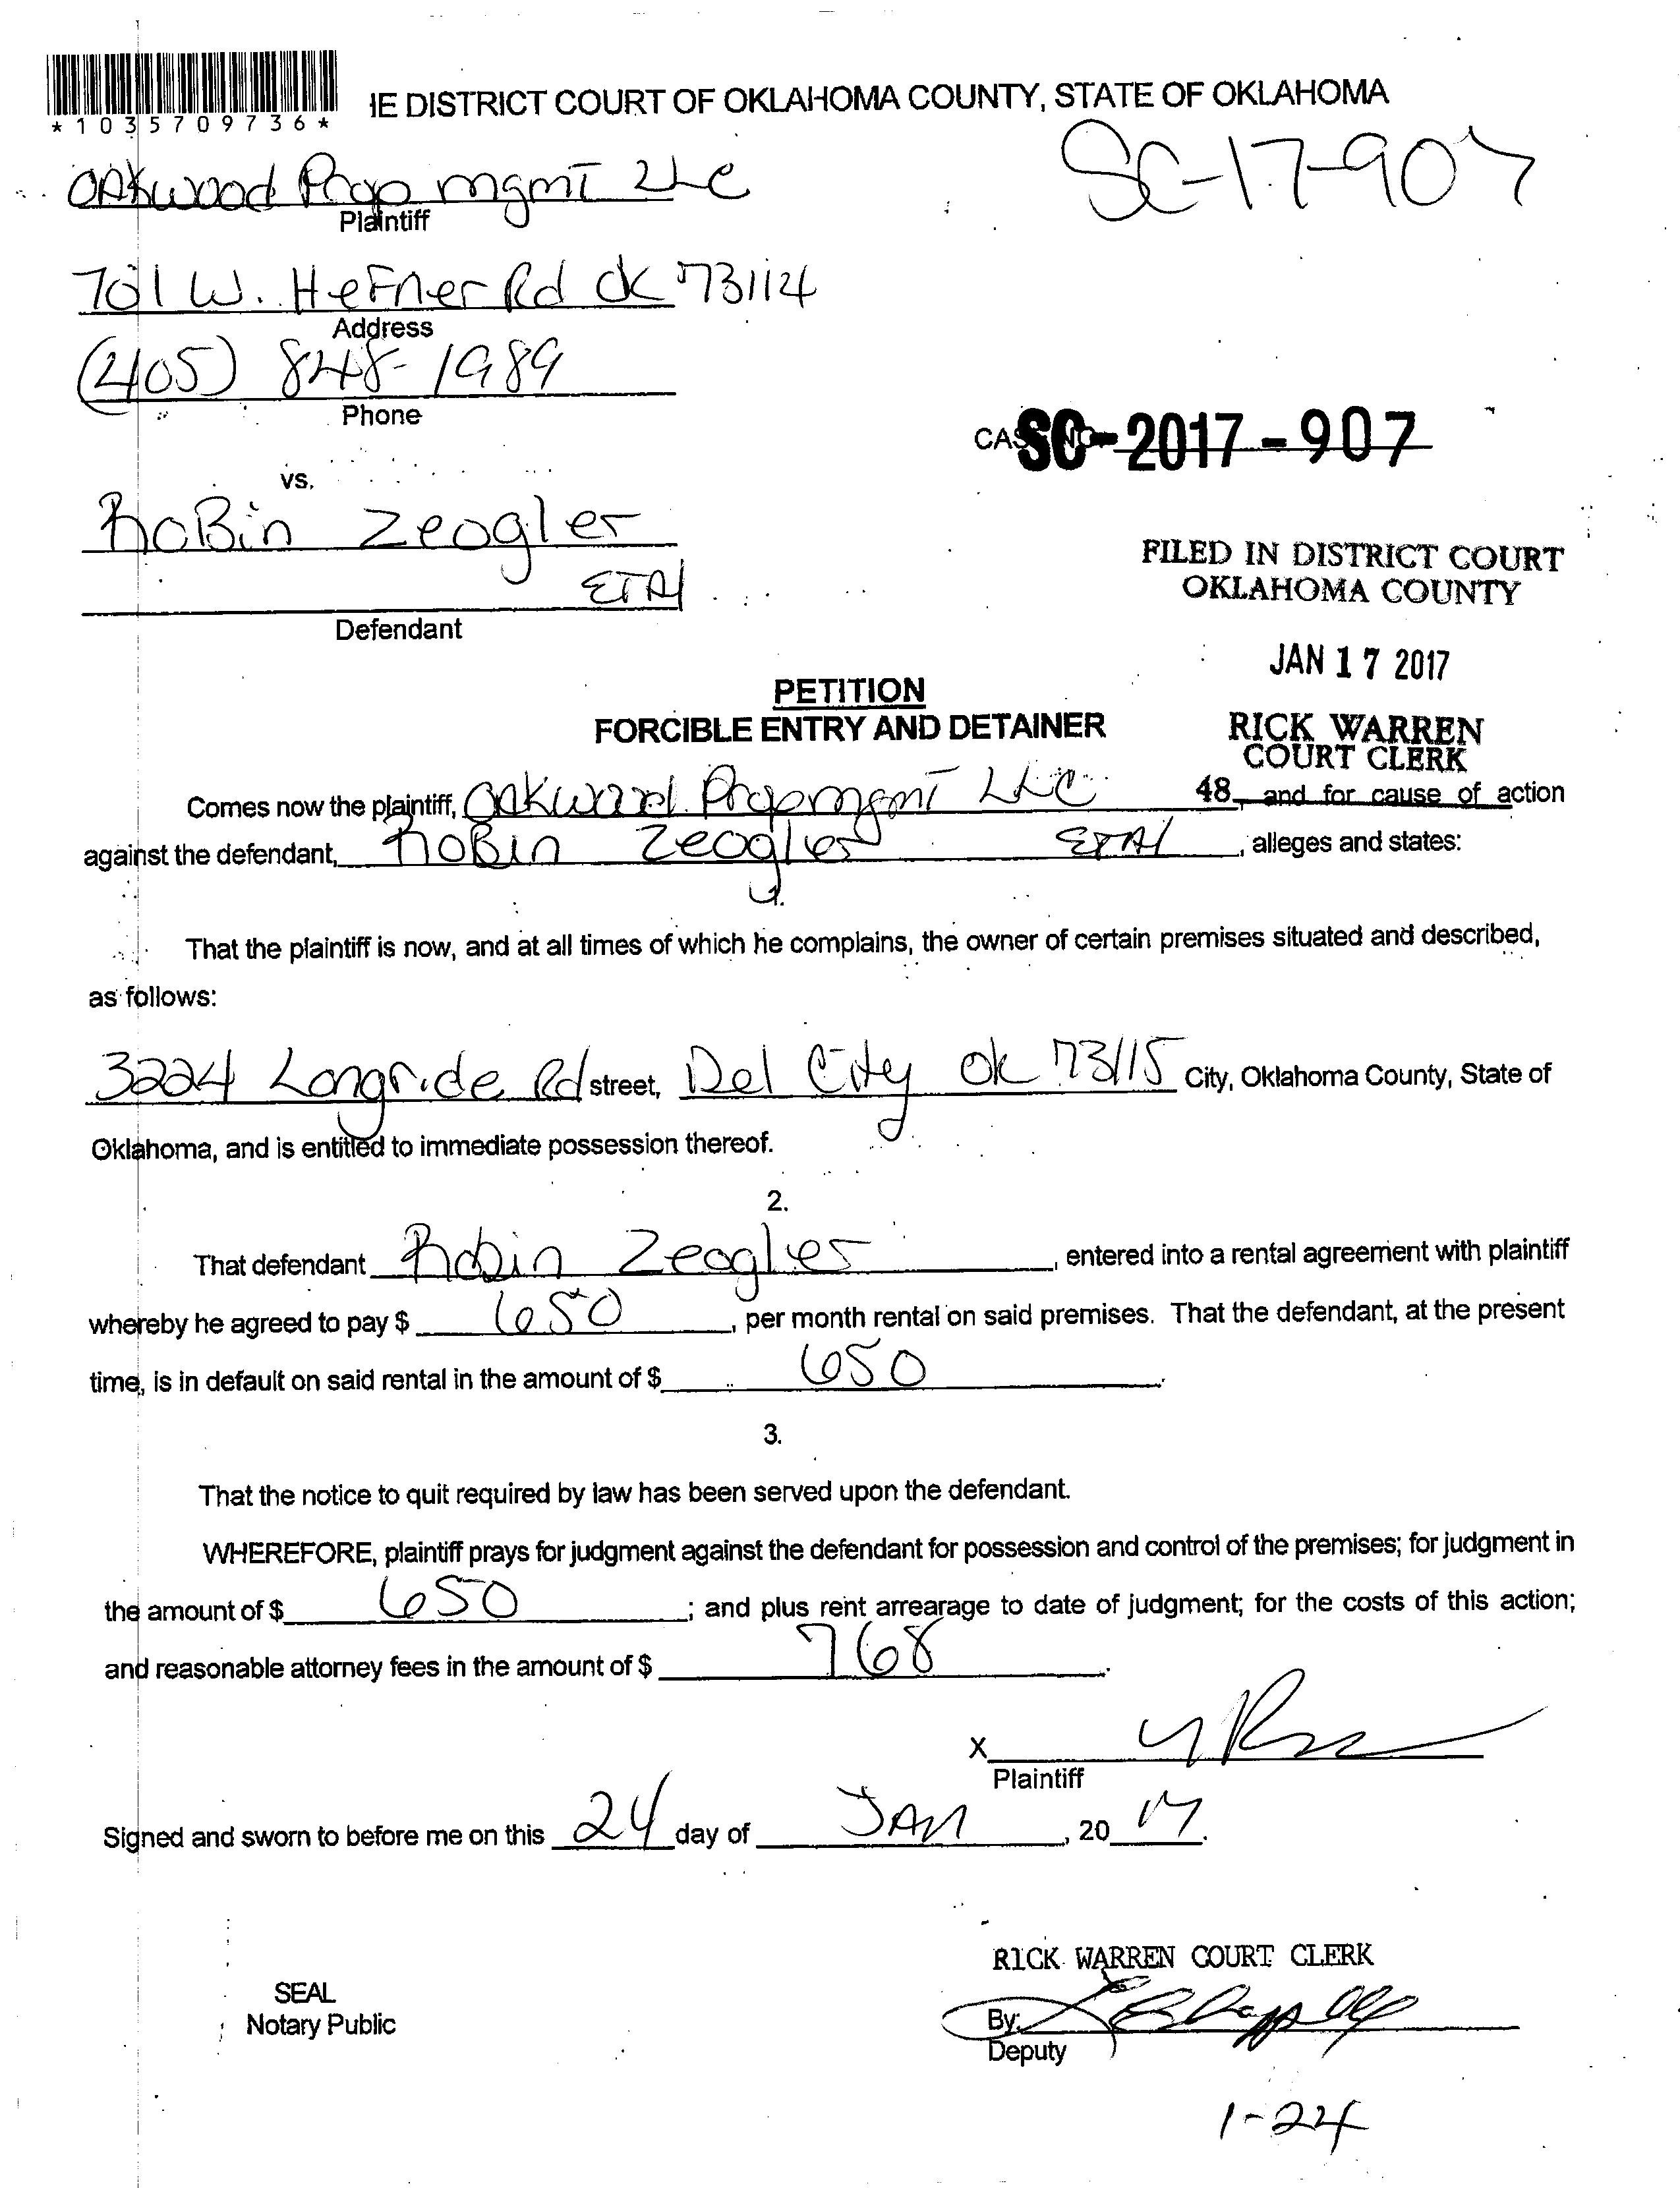 *1035709736*
IE DISTRICT COURT OF OKLAHOMA COUNTY, STATE OF OKLAHOMA
SC-17-907
OAKwood Prop mgmT LLC
Plaintiff
701 W. HeFner Rd ok 73114
Address
(405) 848-1989
Phone
SC-2017-907
vs.
RoBin Zeogler
ETAl
Defendant
FILED IN DISTRICT COURT
OKLAHOMA COUNTY
JAN 17 2017
RICK WARREN
COURT CLERK
48
PETITION
FORCIBLE ENTRY AND DETAINER
Comes now the plaintiff, OAKwood Prop mgmT LLC, and for cause of action
against the defendant, RoBin Zeogler ETAl, alleges and states:
1.
That the plaintiff is now, and at all times of which he complains, the owner of certain premises situated and described,
as follows:
3224 Longride Rd street, Del City ok 73115 City, Oklahoma County, State of
Oklahoma, and is entitled to immediate possession thereof.
2.
That defendant Robin Zeogler, entered into a rental agreement with plaintiff
whereby he agreed to pay $ 650, per month rental on said premises. That the defendant, at the present
time, is in default on said rental in the amount of $ 650.
3.
That the notice to quit required by law has been served upon the defendant.
WHEREFORE, plaintiff prays for judgment against the defendant for possession and control of the premises; for judgment in
the amount of $ 650; and plus rent arrearage to date of judgment; for the costs of this action;
and reasonable attorney fees in the amount of $ 768.
X
Plaintiff
Signed and sworn to before me on this 24 day of JAN, 20 17.
RICK WARREN COURT CLERK
SEAL
Notary Public
By:
Deputy
1-24